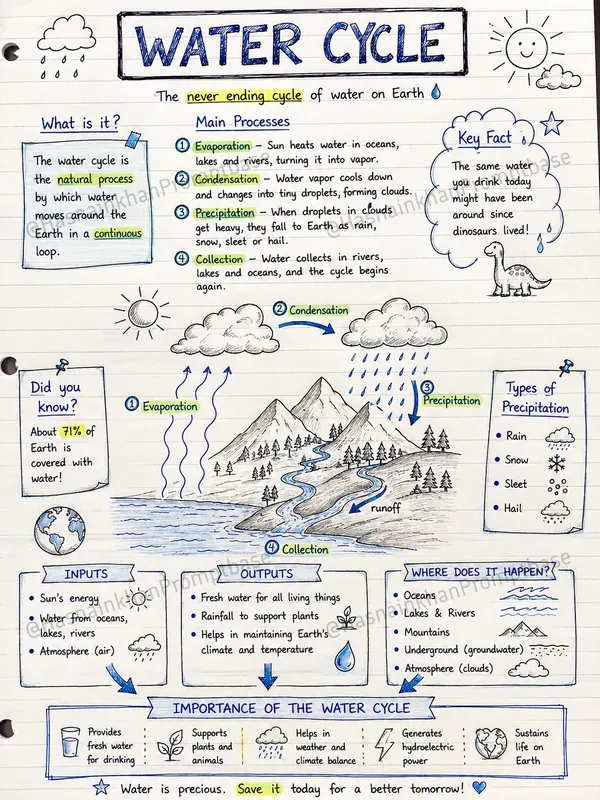 WATER CYCLE
The never ending cycle of water on Earth
What is it?
The water cycle is
the natural process
by which water
moves around the
Earth in a continuous
loop.
Main Processes
1 Evaporation – Sun heats water in oceans,
lakes and rivers, turning it into vapor.
2 Condensation – Water vapor cools down
and changes into tiny droplets, forming clouds.
3 Precipitation – When droplets in clouds
get heavy, they fall to Earth as rain,
snow, sleet or hail.
4 Collection – Water collects in rivers,
lakes and oceans, and the cycle begins
again.
Key Fact
The same water
you drink today
might have been
around since
dinosaurs lived!
@HasnainkhanPromptbase
@HasnainkhanPromptbase
2 Condensation
1 Evaporation
3
Precipitation
runoff
4 Collection
Did you
know?
About 71% of
Earth is
covered with
water!
Types of
Precipitation
• Rain
• Snow
• Sleet
• Hail
INPUTS
• Sun's energy
• Water from oceans,
lakes, rivers
• Atmosphere (air)
OUTPUTS
• Fresh water for all living things
• Rainfall to support plants
• Helps in maintaining Earth's
climate and temperature
WHERE DOES IT HAPPEN?
• Oceans
• Lakes & Rivers
• Mountains
• Underground (groundwater)
• Atmosphere (clouds)
@HasnainkhanPromptbase
@HasnainkhanPromptbase
IMPORTANCE OF THE WATER CYCLE
Provides
fresh water
for drinking
Supports
plants and
animals
Helps in
weather and
climate balance
Generates
hydroelectric
power
Sustains
life on
Earth
Water is precious. Save it today for a better tomorrow!